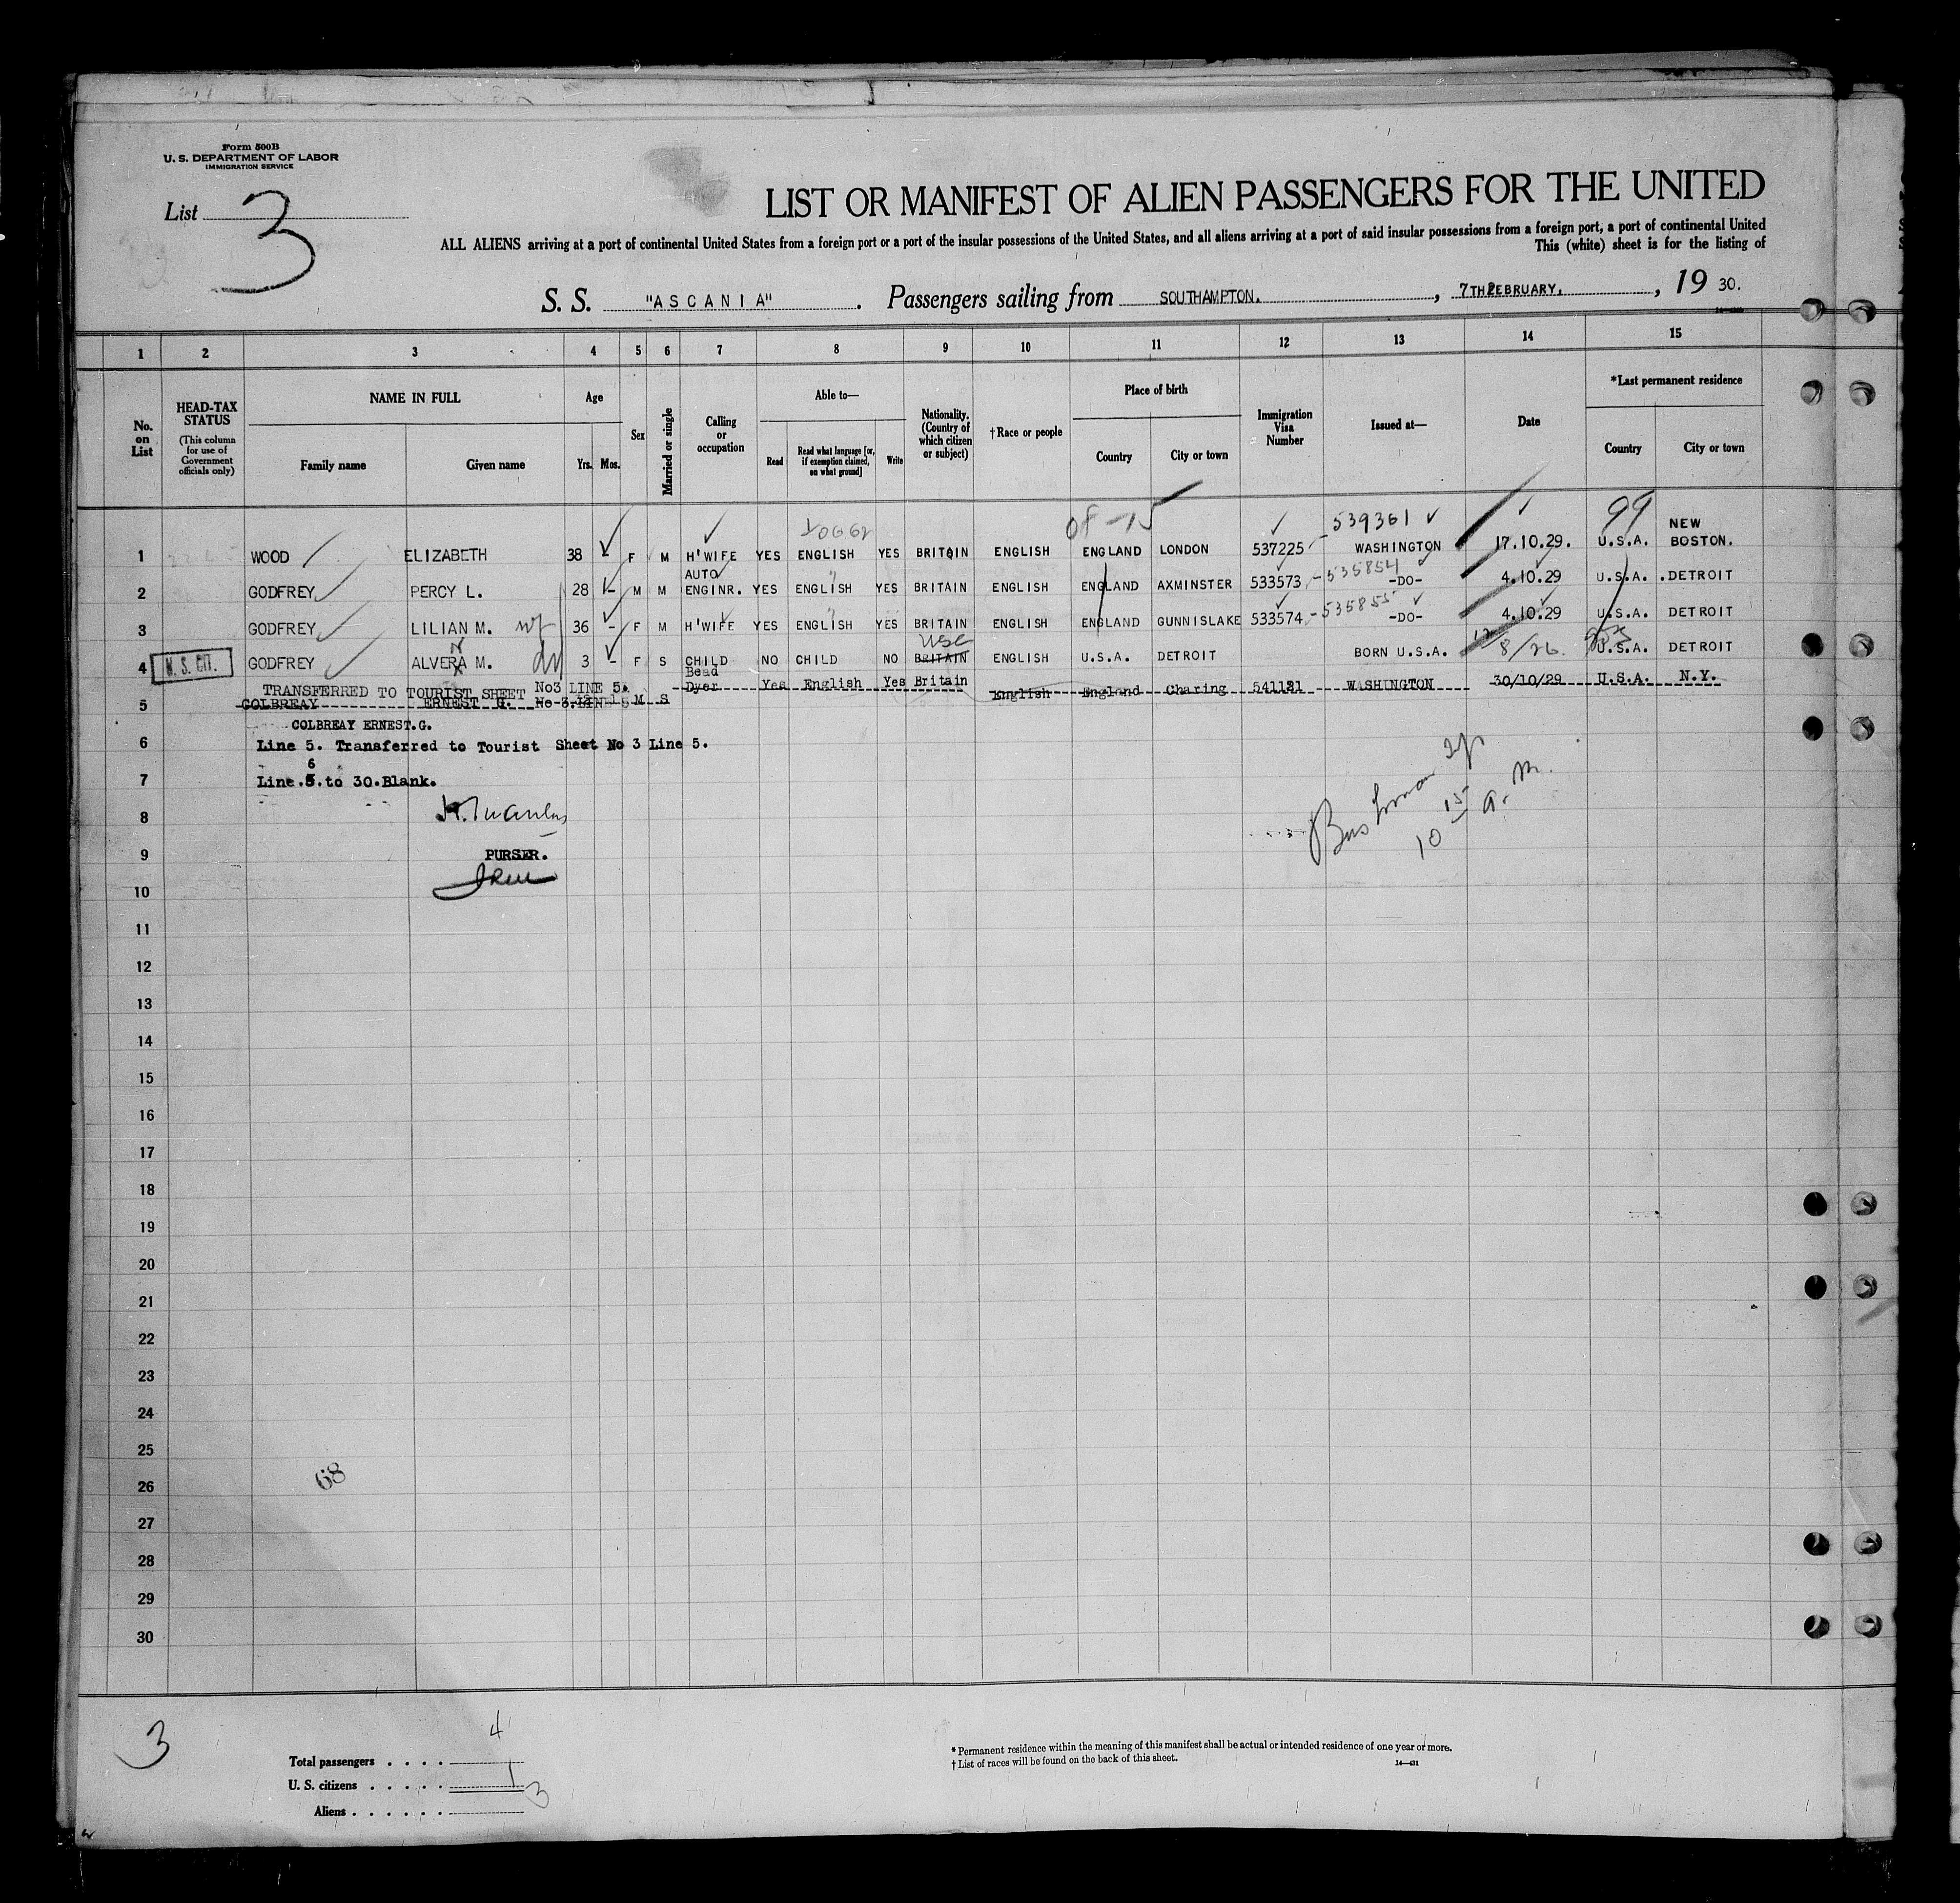 Form 500B
U. S. DEPARTMENT OF LABOR
IMMIGRATION SERVICE
List 3
LIST OR MANIFEST OF ALIEN PASSENGERS FOR THE UNITED
ALL ALIENS arriving at a port of continental United States from a foreign port or a port of the insular possessions of the United States, and all aliens arriving at a port of said insular possessions from a foreign port, a port of continental United
This (white) sheet is for the listing of
S. S. "ASCANIA". Passengers sailing from SOUTHAMPTON., 7TH FEBRUARY., 19 30.
1 2 3 4 5 6 7 8 9 10 11 12 13 14 15
No. on List
HEAD-TAX STATUS
(This column for use of Government officials only)
NAME IN FULL
Family name Given name
Age
Yrs. Mos.
Sex
Married or single
Calling or occupation
Able to—
Read Read what language [or, if exemption claimed, on what ground] Write
Nationality. (Country of which citizen or subject)
†Race or people
Place of birth
Country City or town
Immigration Visa Number
Issued at—
Date
*Last permanent residence
Country City or town
539361 99
1 WOOD ELIZABETH 38 - F M H'WIFE YES ENGLISH YES BRITAIN ENGLISH ENGLAND LONDON 537225 WASHINGTON 17.10.29. U.S.A. NEW BOSTON.
2 GODFREY PERCY L. 28 - M M AUTO ENGINR. YES ENGLISH YES BRITAIN ENGLISH ENGLAND AXMINSTER 533573 -535854 -DO- 4.10.29 U.S.A. DETROIT
3 GODFREY LILIAN M. wf 36 - F M H'WIFE YES ENGLISH YES BRITAIN ENGLISH ENGLAND GUNNISLAKE 533574 -535855 -DO- 4.10.29 U.S.A. DETROIT
USC
4 GODFREY ALVERA M. 3 - F S CHILD NO CHILD NO BRITAIN ENGLISH U.S.A. DETROIT BORN U.S.A. 8/26 U.S.A. DETROIT
TRANSFERRED TO TOURIST SHEET No3 LINE 5.
5 COLBREAY ERNEST G. M S Bead Dyer Yes English Yes Britain English England Charing 541121 WASHINGTON 30/10/29 U.S.A. N.Y.
COLBREAY ERNEST.G.
6 Line 5. Transferred to Tourist Sheet No 3 Line 5.
6
7 Line.5.to 30.Blank.
8
9 PURSER.
10
10 15 a.m.
11
12
13
14
15
16
17
18
19
20
21
22
23
24
25
26
68
27
28
29
30
3
Total passengers . . . . 4
U. S. citizens . . . . . 1
Aliens . . . . . . 3
* Permanent residence within the meaning of this manifest shall be actual or intended residence of one year or more.
† List of races will be found on the back of this sheet.
14—431